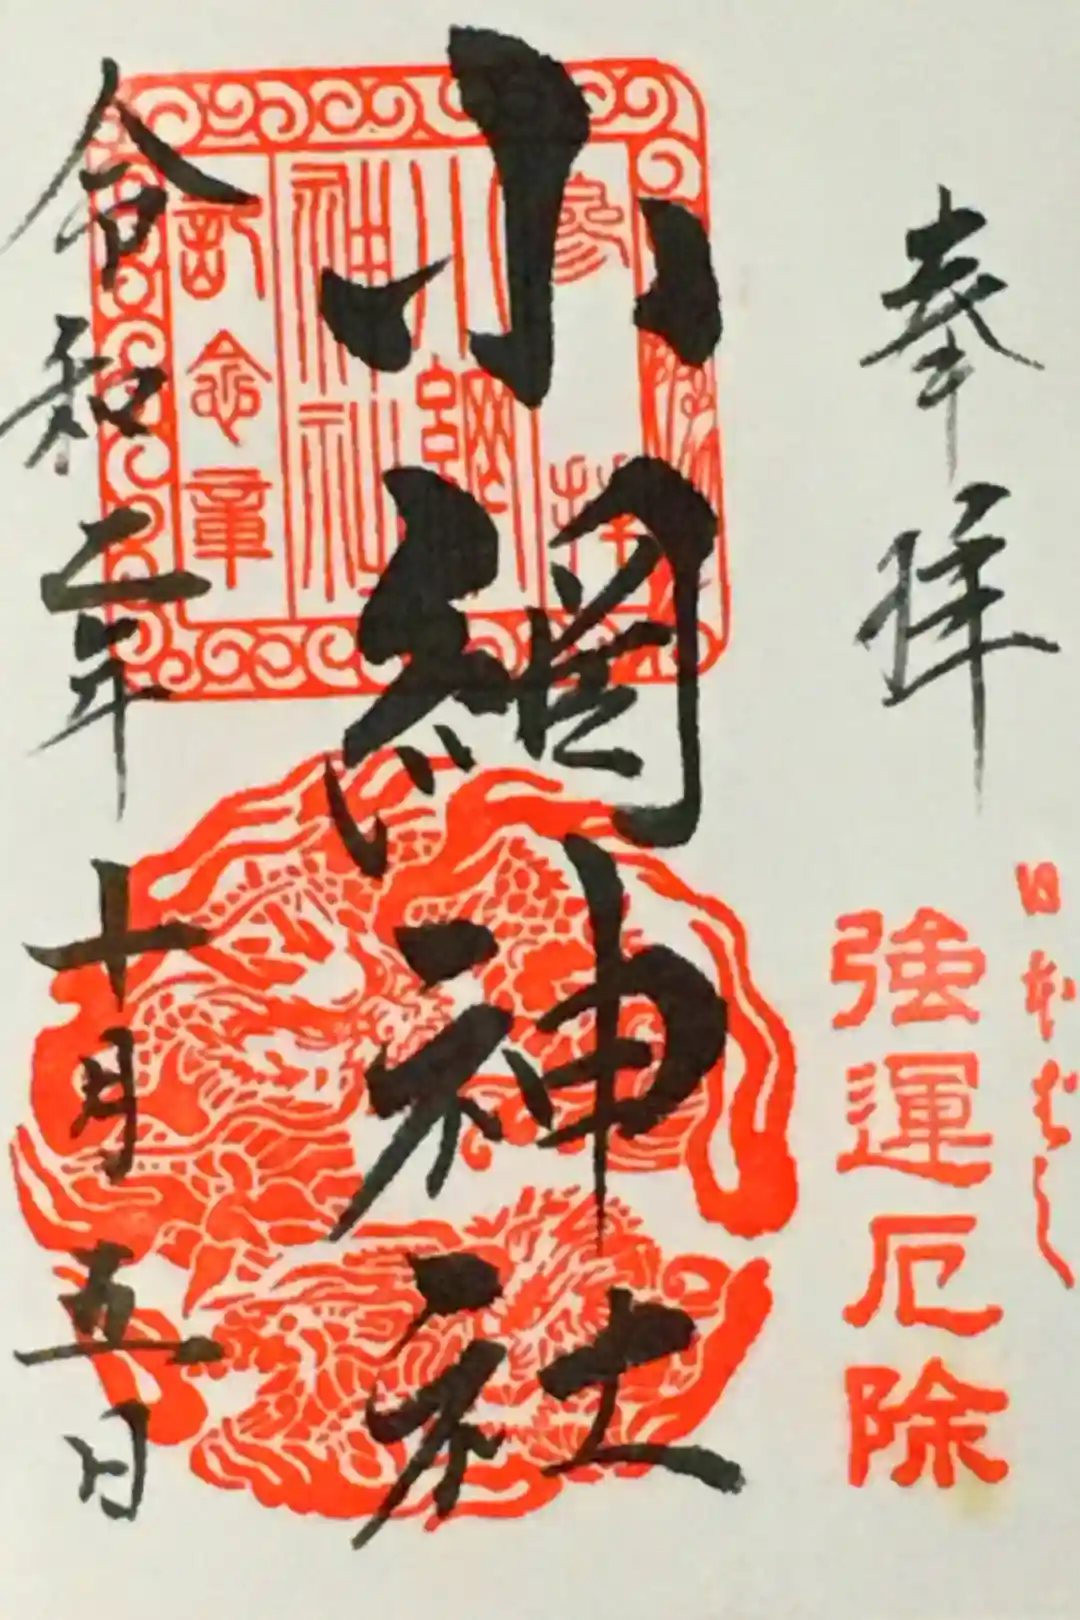 奉拝
日本ばし
強運厄除
小網神社
参拝
小網
神社
記念章
令和二年十月五日